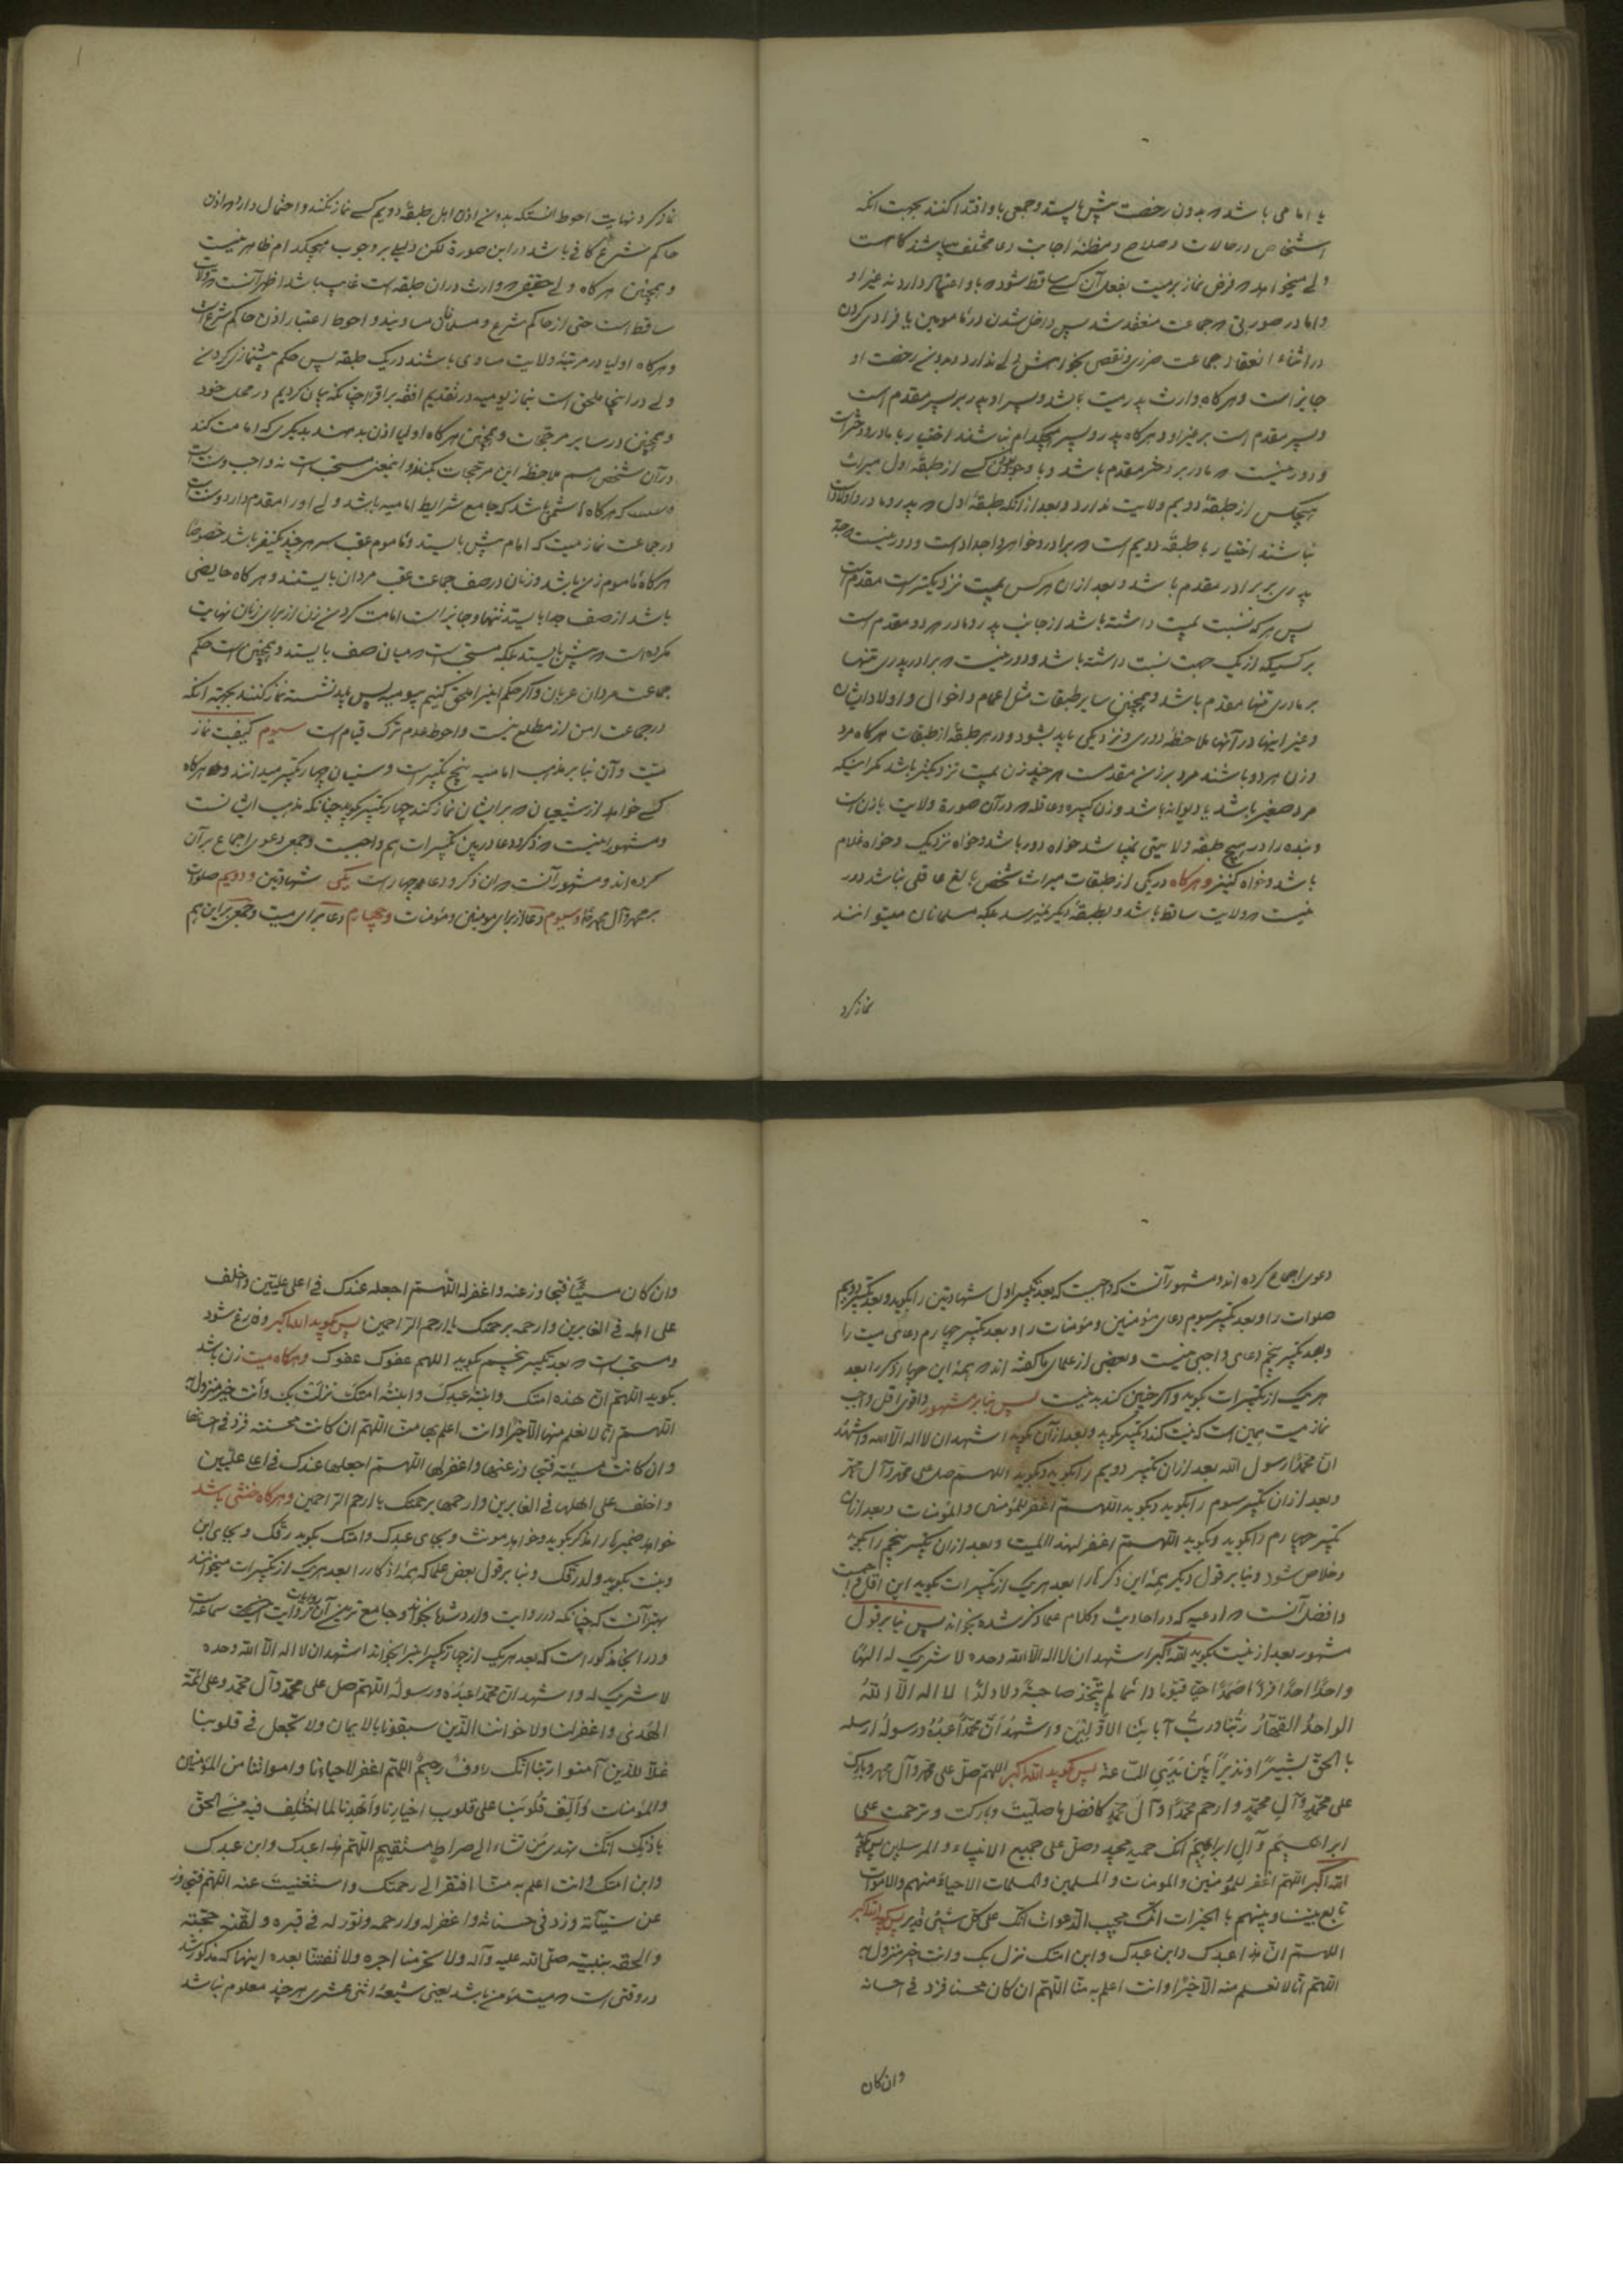 یا امامی باشد که بدون رخصت پیش بایستد و جمعی باو اقتدا کنند بجهت آنکه
اشخاص در حالات و صلاح و مظنه اجابت دعا مختلف میباشند گاهست
ولی میخواهد که فرض نماز بر میت بفعل آن کسی ساقط شود که باو اعتقاد دارد نه غیر او
و اما در صورتی که جماعت منعقد شد پس داخل شدن در مامومین یا فرادی کردن
در اثناء انعقاد جماعت ضرری و نقصی بخواهش ولی ندارد و بدون رخصت او
جایز است و هرگاه وارث پدر میت باشد و پسر او پدر بر پسر مقدم است
و پسر مقدم است بر غیر او و هرگاه پدر و پسر هیچکدام نباشند اختیار با مادر و دختر است
و دور نیست که مادر بر دختر مقدم باشد و با وجود کسی از طبقه اول میراث
هیچکس از طبقه دویم ولایت ندارد و بعد از آنکه طبقه اول که پدر و مادر و اولاد
نباشند اختیار با طبقه دویم است که برادر و خواهر و اجداد است و دور نیست که جد
پدری بر برادر مقدم باشد و بعد از آن هر کس بمیت نزدیکتر است مقدم است
پس هر که نسبت بمیت داشته باشد از جانب پدر و مادر هر دو مقدم است
بر کسیکه از یک جهت نسبت داشته باشد و دور نیست که برادر پدری تنها
بر مادری تنها مقدم باشد و همچنین سایر طبقات مثل اعمام و اخوال و اولاد ایشان
و غیر اینها در آنها ملاحظه دوری و نزدیکی باید بشود و در هر طبقه از طبقات هرگاه مرد
و زن هر دو باشند مرد بر زن مقدمست هر چند زن بمیت نزدیکتر باشد مگر اینکه
مرد صغیر باشد یا دیوانه باشد و زن کبیره و عاقله که در آن صورة ولایت با زن است
و بنده را در هیچ طبقه ولایتی نمیباشد خواه دور باشد و خواه نزدیک و خواه غلام
باشد و خواه کنیز و هرگاه در یکی از طبقات میراث شخص بالغ عاقلی نباشد دور
نیست که ولایت ساقط باشد و بطبقه دیگر نمیرسد بلکه مسلمانان میتوانند
نماز کرد
نماز کرد و نهایت احوط آنستکه بدون اذن اهل طبقه دویم کسی نماز نکند و احتمال دارد که اذن
حاکم شرع کافی باشد در این صورة لکن دلیلی بر وجوب هیچکدام ظاهر نیست
و همچنین هرگاه ولی حقیقی که وارث در آن طبقه است غایب باشد اظهر آنست که ولایت
ساقط است حتی از حاکم شرع و مسلمانان مساویند و احوط اعتبار اذن حاکم شرع است
و هرگاه اولیا در مرتبه ولایت مساوی باشند در یک طبقه پس حکم پیشنمازی کردن
ولی در اینجا ملحق است بنماز یومیه در تقدیم افقه بر اقرا چنانکه بیان کردیم در محل خود
و همچنین در سایر مرجحات و همچنین هرگاه اولیا اذن بدهند بدیگری که امامت کند
در آن شخص هم ملاحظه این مرجحات بکنند و اینمعنی مستحب است نه واجب و سنت است
که هرگاه هاشمی باشد که جامع شرایط امامیه باشد ولی او را مقدم دارد و سنت است
در جماعت نماز میت که امام پیش بایستد و ماموم عقب سر هر چند یکنفر باشد خصوصا
هرگاه ماموم زن باشد و زنان در صف جماعت عقب مردان بایستند و هرگاه حایضی
باشد از صف جدا بایستد تنها و جایز است امامت کردن زن از برای زنان نهایت
مکروه است که پیش بایستد بلکه مستحب است که میان صف بایستد و همچنین است حکم
جماعت مردان عریان و اگر حکم اینرا ملحق کنیم بیومیه پس باید نشسته نماز کنند بجهة آنکه
در جماعت امن از مطلع نیست و احوط عدم ترک قیام است سیوم کیفیت نماز
میت و آن بنا بر مذهب امامیه پنج تکبیر است و سنیان چهار تکبیر میدانند و هرگاه
کسی خواهد از شیعیان که بر ایشان نماز کند چهار تکبیر بگوید چنانکه مذهب ایشانست
و مشهور اینست که ذکر و دعا در بین تکبیرات هم واجبست و جمعی دعوی اجماع بر آن
کرده اند و مشهور آنست که آن ذکر و دعا چهار است یکی شهادتین و دویم صلوات
بر محمد و آل محمد و سیوم دعا از برای مومنین و مومنات و چهارم دعا برای میت و جمعی بر این هم
دعوی اجماع کرده اند و مشهور آنست که واجبست که بعد تکبیر اول شهادتین را بگوید و بعد تکبیر دویم
صلوات را و بعد تکبیر سوم دعای مؤمنین و مؤمنات را و بعد تکبیر چهارم دعای میت را
و بعد تکبیر پنجم دعای واجبی نیست و بعضی از علمای ما گفته اند که همه این چهار ذکر را بعد
هر یک از تکبیرات بگوید و اگر چنین کند بد نیست پس بنا بر مشهور و اقوی اقل واجب
نماز میت همین است که نیت کند و تکبیر بگوید و بعد از آن بگوید اشهد ان لا اله الا الله و اشهد
ان محمدا رسول الله بعد از آن تکبیر دویم را بگوید و بگوید اللهم صل علی محمد و آل محمد
و بعد از آن تکبیر سوم را بگوید و بگوید اللهم اغفر للمؤمنین و المؤمنات و بعد از آن
تکبیر چهارم را بگوید و بگوید اللهم اغفر لهذا المیت و بعد از آن تکبیر پنجم را بگوید
و خلاص شود و بنا بر قول دیگر همه این ذکرها را بعد هر یک از تکبیرات بگوید این اقل واجبست
و افضل آنست که ادعیه که در احادیث و کلام علما ذکر شده بخواند پس بنا بر قول
مشهور بعد از نیت بگوید الله اکبر اشهد ان لا اله الا الله وحده لا شریک له الها
واحدا احدا فردا صمدا حیا قیوما دائما لم یتخذ صاحبة ولا ولدا لا اله الا الله
الواحد القهار ربنا و رب آبائنا الاولین و اشهد ان محمدا عبده و رسوله ارسله
بالحق بشیرا و نذیرا بین یدی الساعة پس بگوید الله اکبر اللهم صل علی محمد و آل محمد و بارک
علی محمد و آل محمد و ارحم محمدا و آل محمد کافضل ما صلیت و بارکت و ترحمت علی
ابراهیم و آل ابراهیم انک حمید مجید و صل علی جمیع الانبیاء و المرسلین پس بگوید
الله اکبر اللهم اغفر للمؤمنین و المومنات و المسلمین و المسلمات الاحیاء منهم و الاموات
تابع بیننا و بینهم بالخیرات انک مجیب الدعوات انک علی کل شیئ قدیر پس بگوید الله اکبر
اللهم ان هذا عبدک و ابن عبدک و ابن امتک نزل بک و انت خیر منزول به
اللهم انا لا نعلم منه الا خیرا و انت اعلم به منا اللهم ان کان محسنا فزد فی احسانه
وان کان
وان کان مسیئا فتجاوز عنه و اغفر له اللهم اجعله عندک فی اعلی علیین و اخلف
علی اهله فی الغابرین و ارحمه برحمتک یا ارحم الراحمین پس بگوید الله اکبر و فارغ شود
و مستحب است که بعد تکبیر پنجم بگوید اللهم عفوک عفوک و هرگاه میت زن باشد
بگوید اللهم ان هذه امتک و ابنة عبدک و ابنة امتک نزلت بک و أنت خیر منزول به
اللهم انا لا نعلم منها الا خیرا و انت اعلم بها منا اللهم ان کانت محسنة فزد فی احسانها
و ان کانت مسیئة فتجاوز عنها و اغفر لها اللهم اجعلها عندک فی اعلی علیین
و اخلف علی اهلها فی الغابرین و ارحمها برحمتک یا ارحم الراحمین و هرگاه خنثی باشد
خواهد ضمیرها را مذکر بگوید و خواهد مونث و بجای عبدک و امتک بگوید رقک و بجای ابن
و بنت بگوید ولد رقک و بنا بر قول بعض علما که همه اذکار را بعد هر یک از تکبیرات میخوانند
بهتر آنست که چنانکه در روایت وارد شده بخواند و جامع ترین آن روایات روایت سماعه است
و در آنجا مذکور است که بعد هر یک از چهار تکبیر اینرا بخواند اشهد ان لا اله الا الله وحده
لا شریک له و اشهد ان محمدا عبده و رسوله اللهم صل علی محمد و آل محمد و علی ائمة
الهدی و اغفر لنا و لاخواننا الذین سبقونا بالایمان و لا تجعل فی قلوبنا
غلا للذین آمنوا ربنا انک رءوف رحیم اللهم اغفر لاحیاءنا و امواتنا من المؤمنین
و المؤمنات و ألف قلوبنا علی قلوب اخیارنا و اهدنا لما اختلف فیه من الحق
باذنک انک تهدی من تشاء الی صراط مستقیم اللهم هذا عبدک و ابن عبدک
و ابن امتک و انت اعلم به منا افتقر الی رحمتک و استغنیت عنه اللهم فتجاوز
عن سیئاته و زد فی حسناته و اغفر له و ارحمه و نور له فی قبره و لقنه حجته
و الحقه بنبیه صلی الله علیه و آله و لا تحرمنا اجره و لا تفتنا بعده اینها که مذکور شد
در وقتی است که میت مؤمن باشد یعنی شیعه اثنی عشری هر چند معلوم نباشد